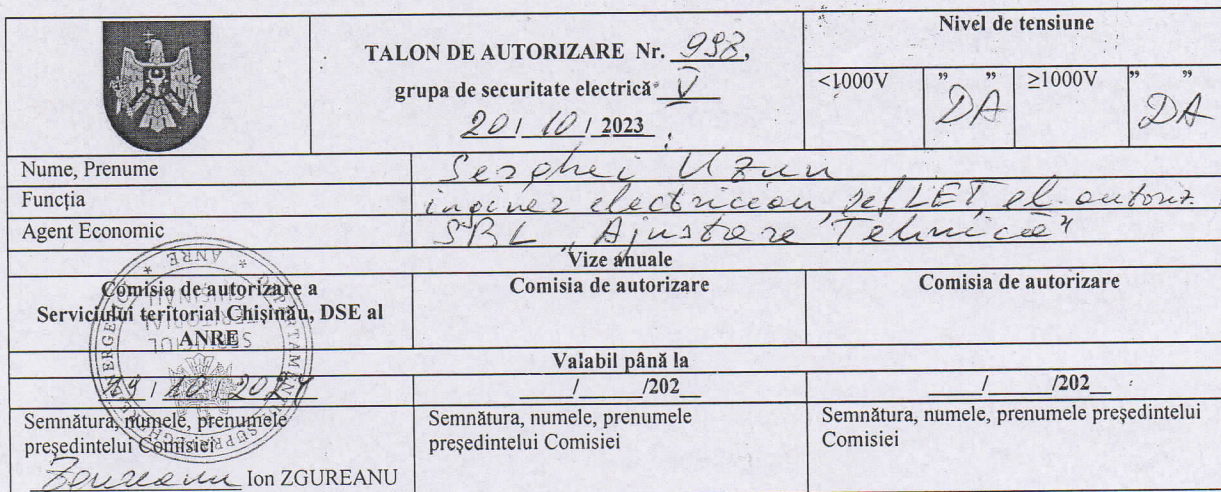 TALON DE AUTORIZARE Nr. 998,
grupa de securitate electrică V
20 / 10 / 2023
Nivel de tensiune
<1000V " DA " ≥1000V " DA "
Nume, Prenume Serghei Uzun
Funcția inginer electrician, șef LET, el. autoriz.
Agent Economic SRL „Ajustare Tehnică"
Vize anuale
Comisia de autorizare a
Serviciului teritorial Chișinău, DSE al
ANRE
Comisia de autorizare
Comisia de autorizare
ANRE
SERVICIUL
TERITORIAL
CHIȘINĂU
Valabil până la
19 / 10 / 2024
/ /202
/ /202
Semnătura, numele, prenumele
președintelui Comisiei
Zgureanu Ion ZGUREANU
Semnătura, numele, prenumele
președintelui Comisiei
Semnătura, numele, prenumele președintelui
Comisiei